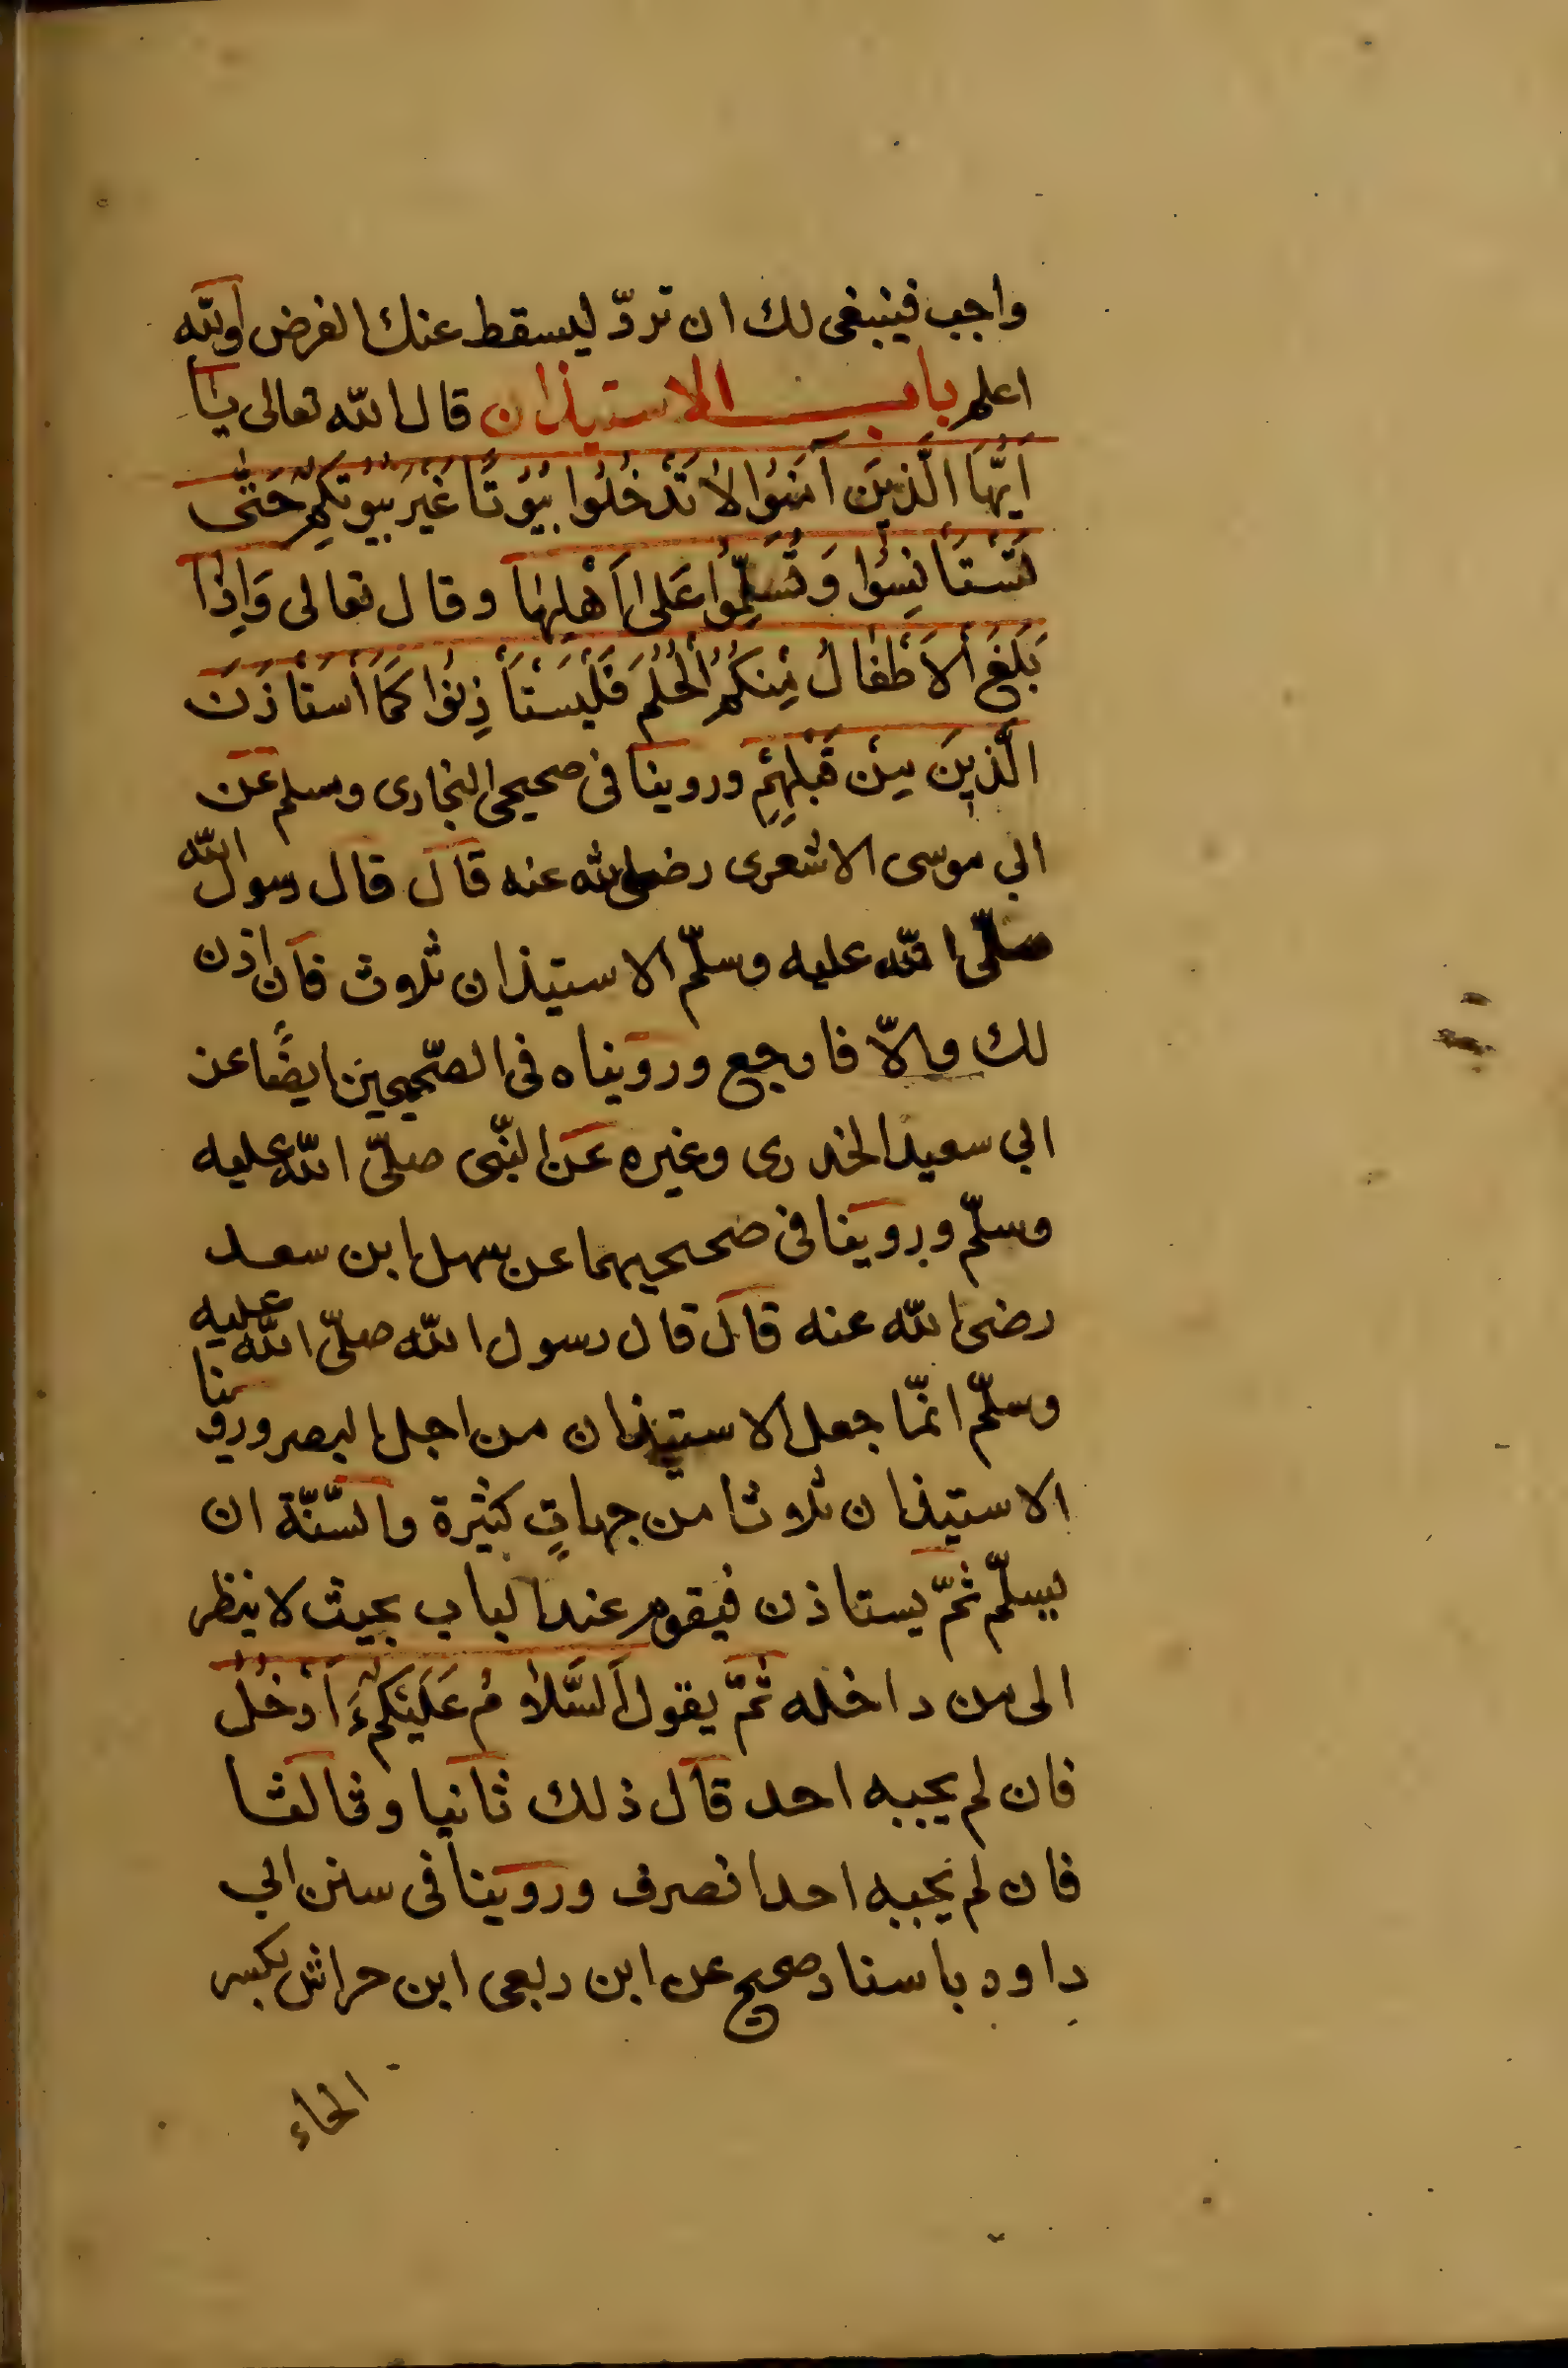 واجب فينبغى لك ان تردّ ليسقط عنك الفرض والله
اعلم باب الاستيذان قال الله تعالى يَا
اَيُّهَا الَّذِينَ آمَنُوا لَا تَدْخُلُوا بُيُوتًا غَيْرَ بُيُوتِكُمْ حَتَّى
تَسْتَأْنِسُوا وَتُسَلِّمُوا عَلَى اَهْلِهَا وقال تعالى وَاِذَا
بَلَغَ الْاَطْفَالُ مِنْكُمُ الْحُلُمَ فَلْيَسْتَأْذِنُوا كَمَا اسْتَاْذَنَ
الَّذِينَ مِنْ قَبْلِهِمْ وروينا فى صحيحى البخارى ومسلم عن
ابي موسى الاشعرى رضى الله عنه قال قال رسول الله
صلّى الله عليه وسلّم الاستيذان ثلاث فان اذن
لك والّا فارجع ورويناه فى الصّحيحين ايضًا عن
ابي سعيد الخدرى وغيره عن النّبى صلّى الله عليه
وسلّم وروينا فى صحيحيهما عن سهل ابن سعد
رضى الله عنه قال قال رسول الله صلّى الله عليه
وسلّم انّما جعل الاستيذان من اجل البصر وروينا
الاستيذان ثلاثا من جهاتٍ كثيرة والسّنّة ان
يسلّم ثمّ يستاذن فيقوم عند الباب بحيث لا ينظر
الى من داخله ثمّ يقول اَلسَّلَامُ عَلَيْكُمْ ءَاَدْخُلُ
فان لم يجبه احد قال ذلك ثانيا وثالثا
فان لم يجبه احد انصرف وروينا فى سنن ابي
داود باسناد صحيح عن ابن ربعى ابن حراش بكسر
الحاء